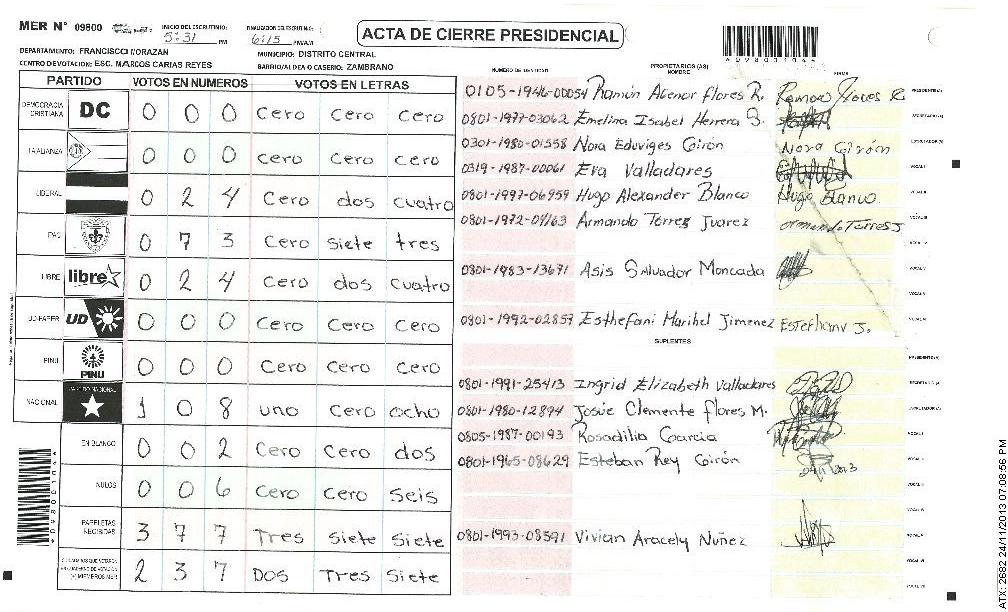 MER N° 09800
INICIO DEL ESCRUTINIO:
5:31 PM
FINALIZACION DEL ESCRUTINIO:
6:15 PM/A/M
ACTA DE CIERRE PRESIDENCIAL
DEPARTAMENTO: FRANCISCO MORAZAN
MUNICIPIO: DISTRITO CENTRAL
CENTRO DE VOTACION: ESC. MARCOS CARIAS REYES
BARRIO/ALDEA O CASERIO: ZAMBRANO
PARTIDO VOTOS EN NUMEROS VOTOS EN LETRAS
DEMOCRACIA CRISTIANA DC 0 0 0 Cero Cero Cero
LA ALIANZA 0 0 0 Cero Cero Cero
LIBERAL 0 2 4 Cero dos cuatro
PAC 0 7 3 Cero siete tres
LIBRE libre 0 2 4 Cero dos cuatro
UD-FAPER UD 0 0 0 Cero Cero Cero
PINU PINU 0 0 0 Cero Cero Cero
NACIONAL PARTIDO NACIONAL 1 0 8 uno Cero ocho
EN BLANCO 0 0 2 Cero Cero dos
NULOS 0 0 6 Cero Cero seis
PAPELETAS RECIBIDAS 3 7 7 Tres Siete Siete
2 3 7 DOS Tres Siete
NUMERO DE IDENTIDAD PROPIETARIOS (AS) NOMBRE FIRMA
0105-1946-00054 Ramón Agenor flores R. Ramon Flores R PRESIDENTE(A)
0801-1977-03062 Emelina Isabel Herrera S. SECRETARIO(A)
0301-1980-01558 Nora Eduviges Girón Nora Girón ESCRUTADOR(A)
0319-1987-00061 Eva Valladares VOCAL I
0801-1997-06959 Hugo Alexander Blanco Hugo Blanco. VOCAL II
Armando Torres Juarez Armando Torres J VOCAL III
VOCAL IV
0801-1983-13671 Asis Salvador Moncada VOCAL V
0801-1992-02857 Esthefani Marihel Jimenez Estefhany J.
SUPLENTES
PRESIDENTE(A)
0801-1991-25413 Ingrid Elizabeth Valladares SECRETARIO(A)
0801-1980-12894 Josue Clemente flores M. ESCRUTADOR(A)
0805-1987-00193 Rosadilia Garcia VOCAL I
0801-1965-08629 Esteban Rey Girón VOCAL II
0801-1993-08591 Vivian Aracely Nuñez VOCAL V
ATX: 2682 24/11/2013 07:08:56 PM